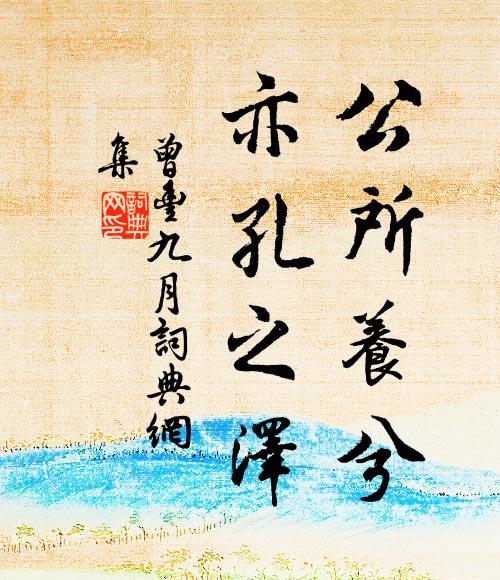 公所養兮
亦孔之澤
曾豐九月詞典網
集
詞典
网印